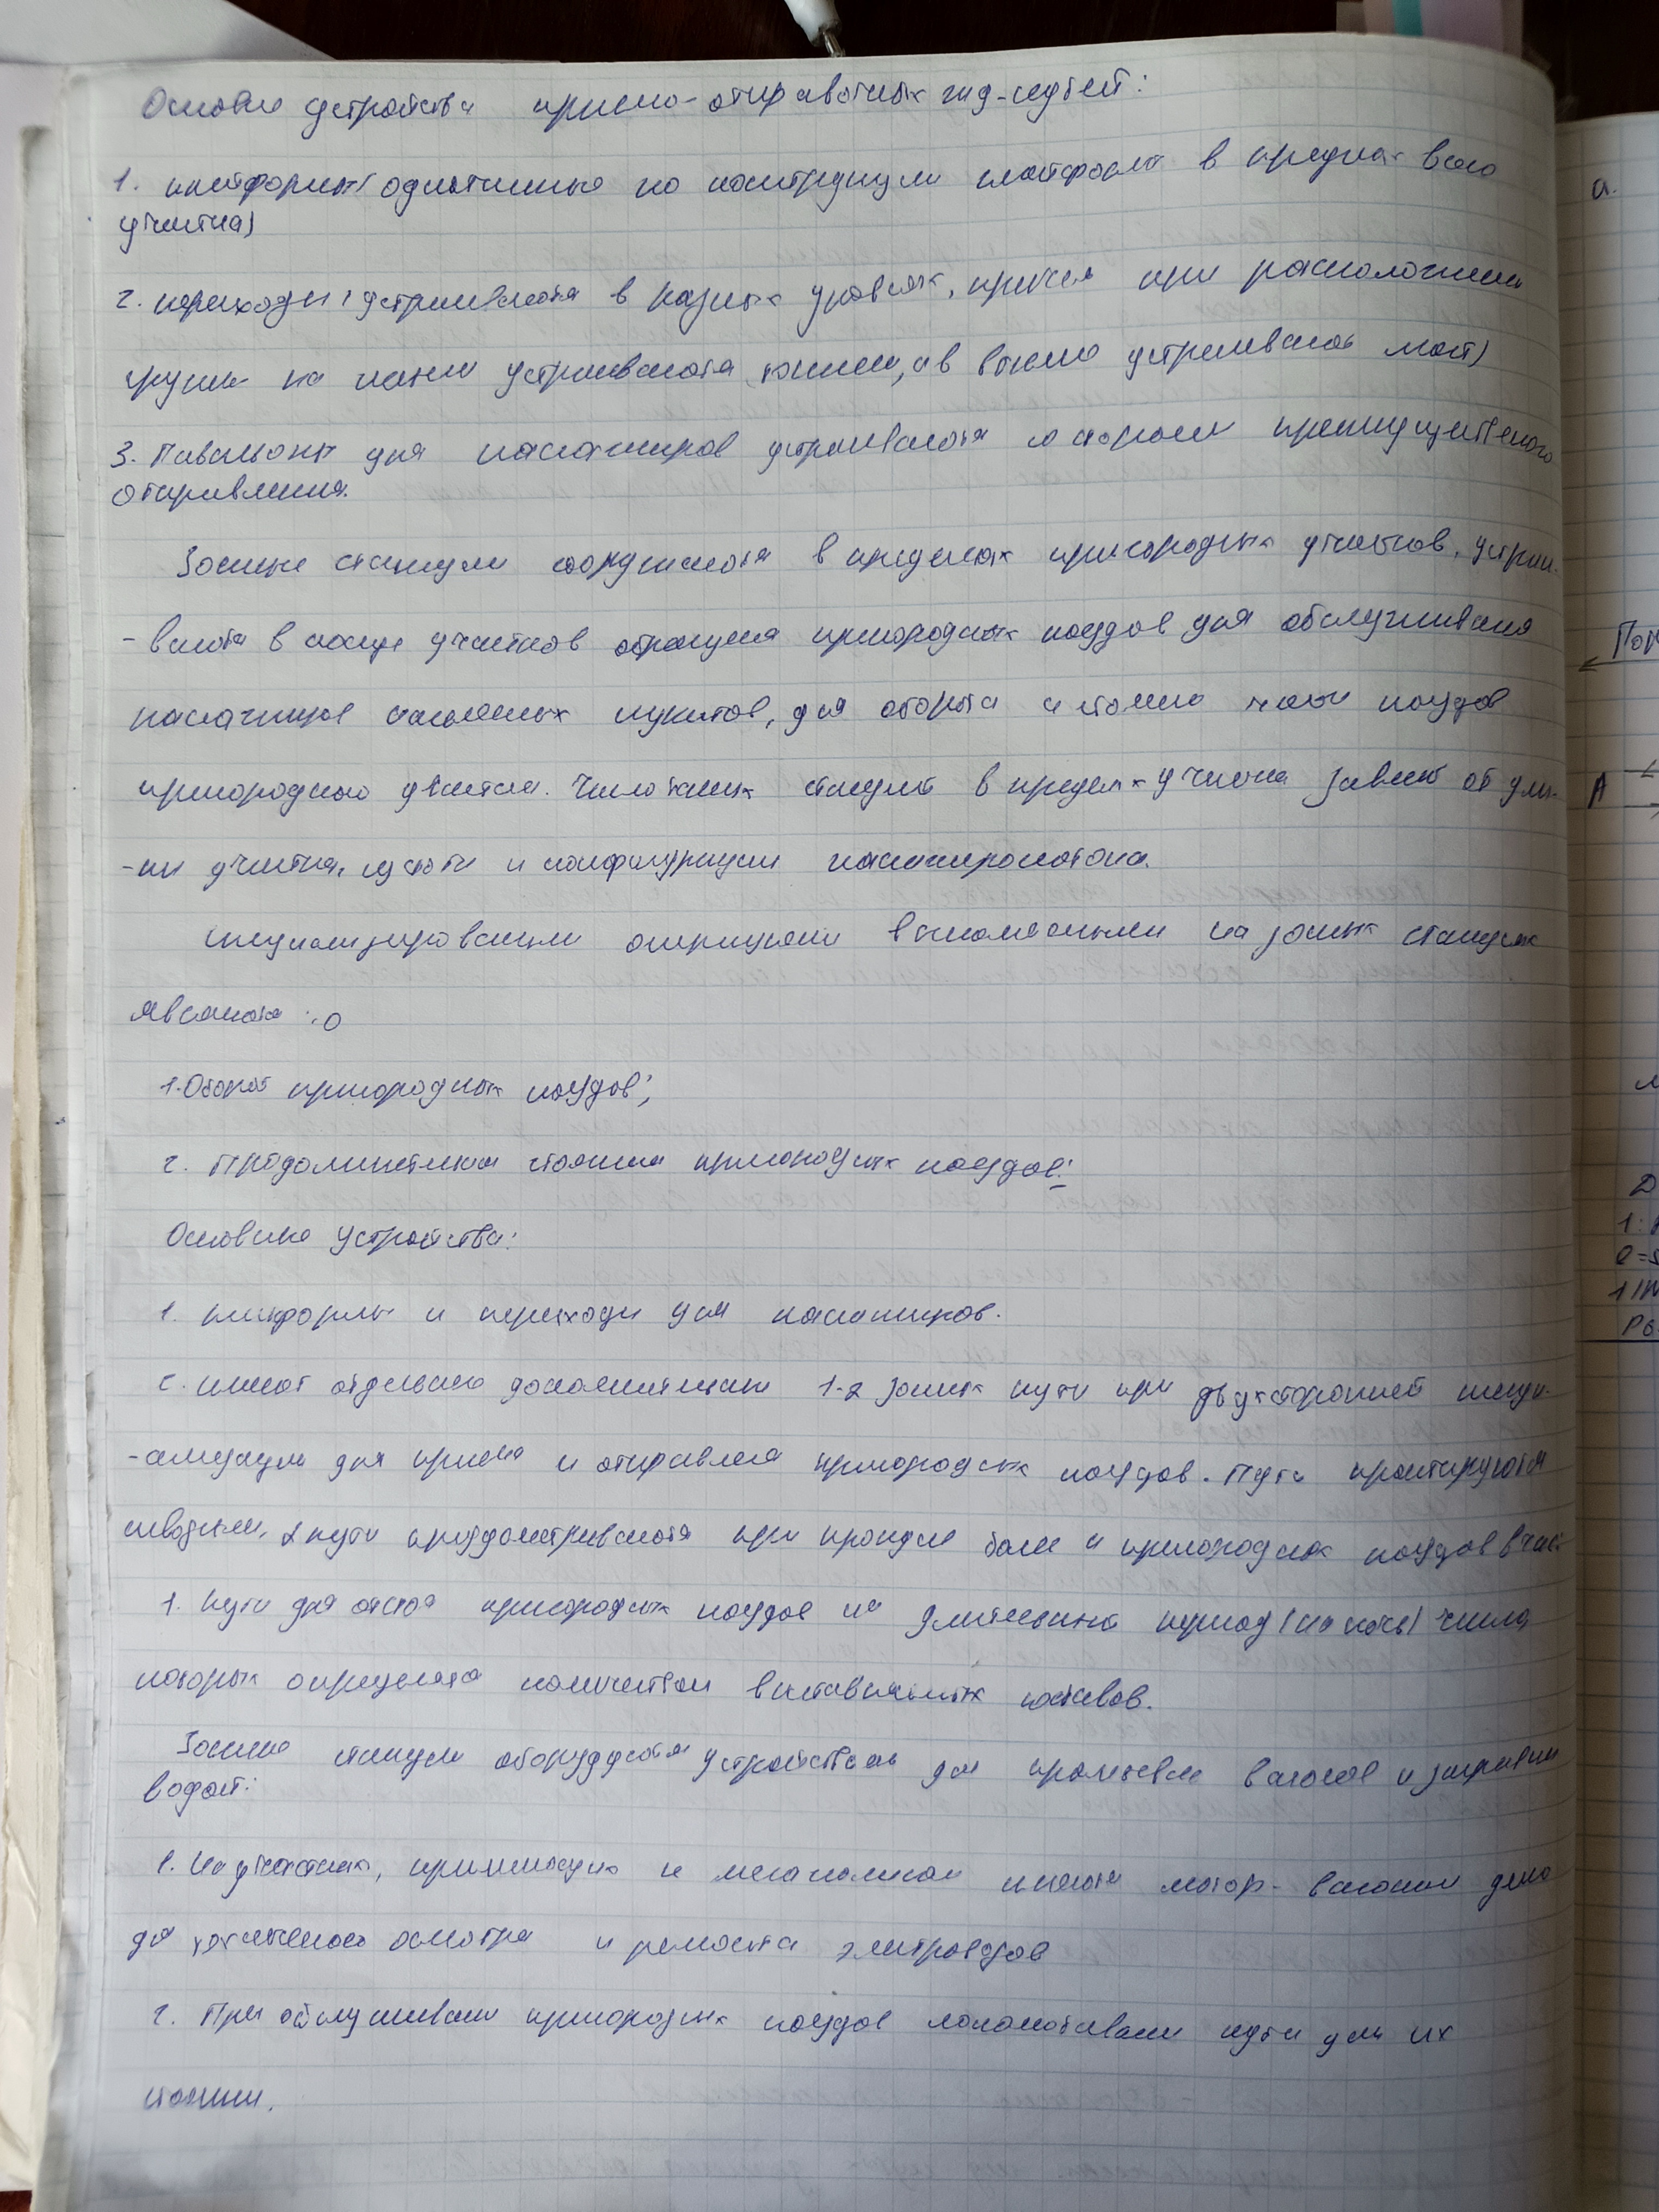 Основные устройства приемо-отправочных ж/д-путей:
1. платформы (однотипные по конструкции платформы в пределах всего
участка)
2. переходы (устраиваются в разных уровнях, причем при расположении
группы на насыпи устраиваются тоннели, а в выемке устраивается мост)
3. Павильоны для пассажиров устраиваются со стороны преимущественного
отправления.
Зонные станции сооружаются в пределах пригородных участков, устраи-
-ваются в конце участков обращения пригородных поездов для обслуживания
пассажиров населенных пунктов, для оборота и стоянки части поездов
пригородного движения. Число зонных станций в пределах участка зависит от дли-
-ны участка, густоты и конфигурации пассажиропотока.
Специализированными операциями выполняемыми на зонных станциях
являются:
1. Оборот пригородных поездов;
2. Продолжительная стоянка пригородных поездов:
Основные устройства:
1. платформы и переходы для пассажиров.
2. имеют отдельно дополнительные 1-2 зонных пути при двухсторонней специ-
-ализации для приема и отправления пригородных поездов. Пути проектируются
сквозными, 2 пути предусматриваются при проходе более 4 пригородных поездов в час
1. Пути для отстоя пригородных поездов на длительный период (на ночь) число
которых определяется количеством выставляемых составов.
Зонные станции оборудуются устройствами для промывки вагонов и заправки
водой:
1. На участках, примыкающих к мегаполисам имеются мотор-вагонные депо
для технического осмотра и ремонта электропоездов
2. При обслуживании пригородных поездов локомотивами пути для их
стоянки.
а.
А